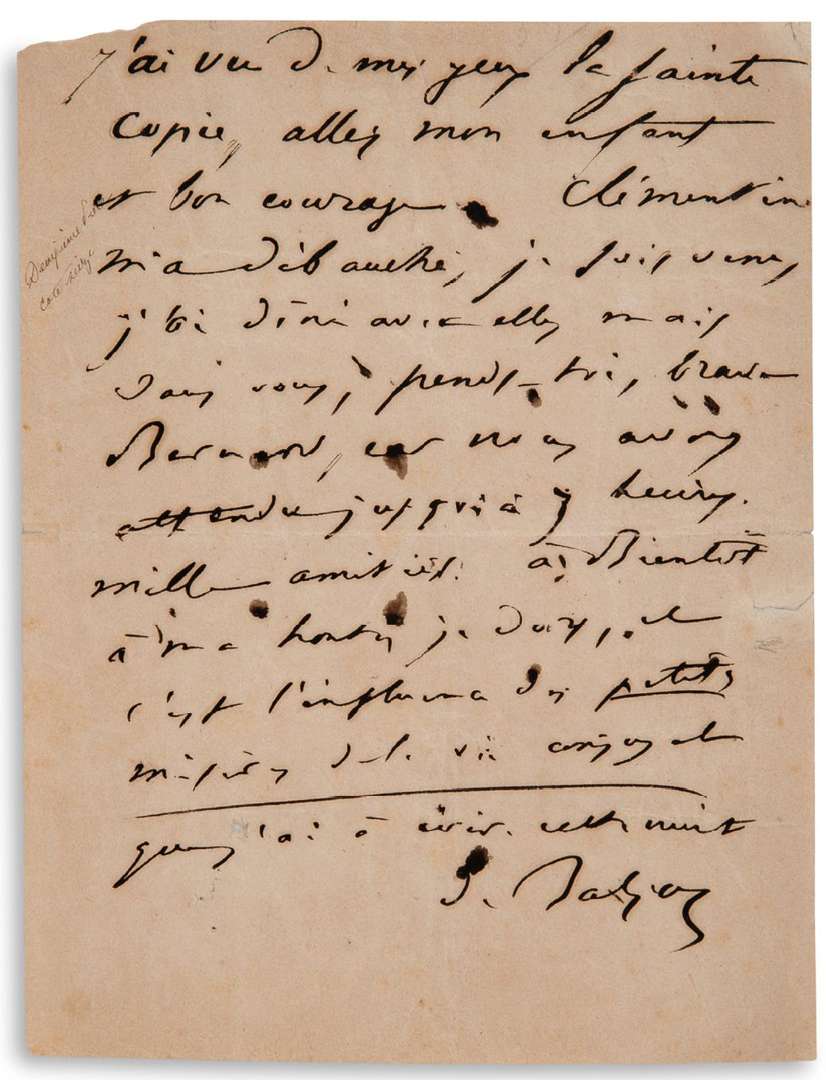 j'ai vu de mes yeux la sainte
copie, allez mon enfant
et bon courage Clémentine
m'a débauché, je suis venu,
j'ai dîné avec elle, mais
sans vous, pends-toi, brave
Bernard, car nous avons
attendu jusqu'à 7 heures.
mille amitiés. à Bientôt
à ma honte, je dors, et
c'est l'influence des petites
misères de la vie conjugale
que j'ai à écrire cette nuit
de Balzac
Deuxième